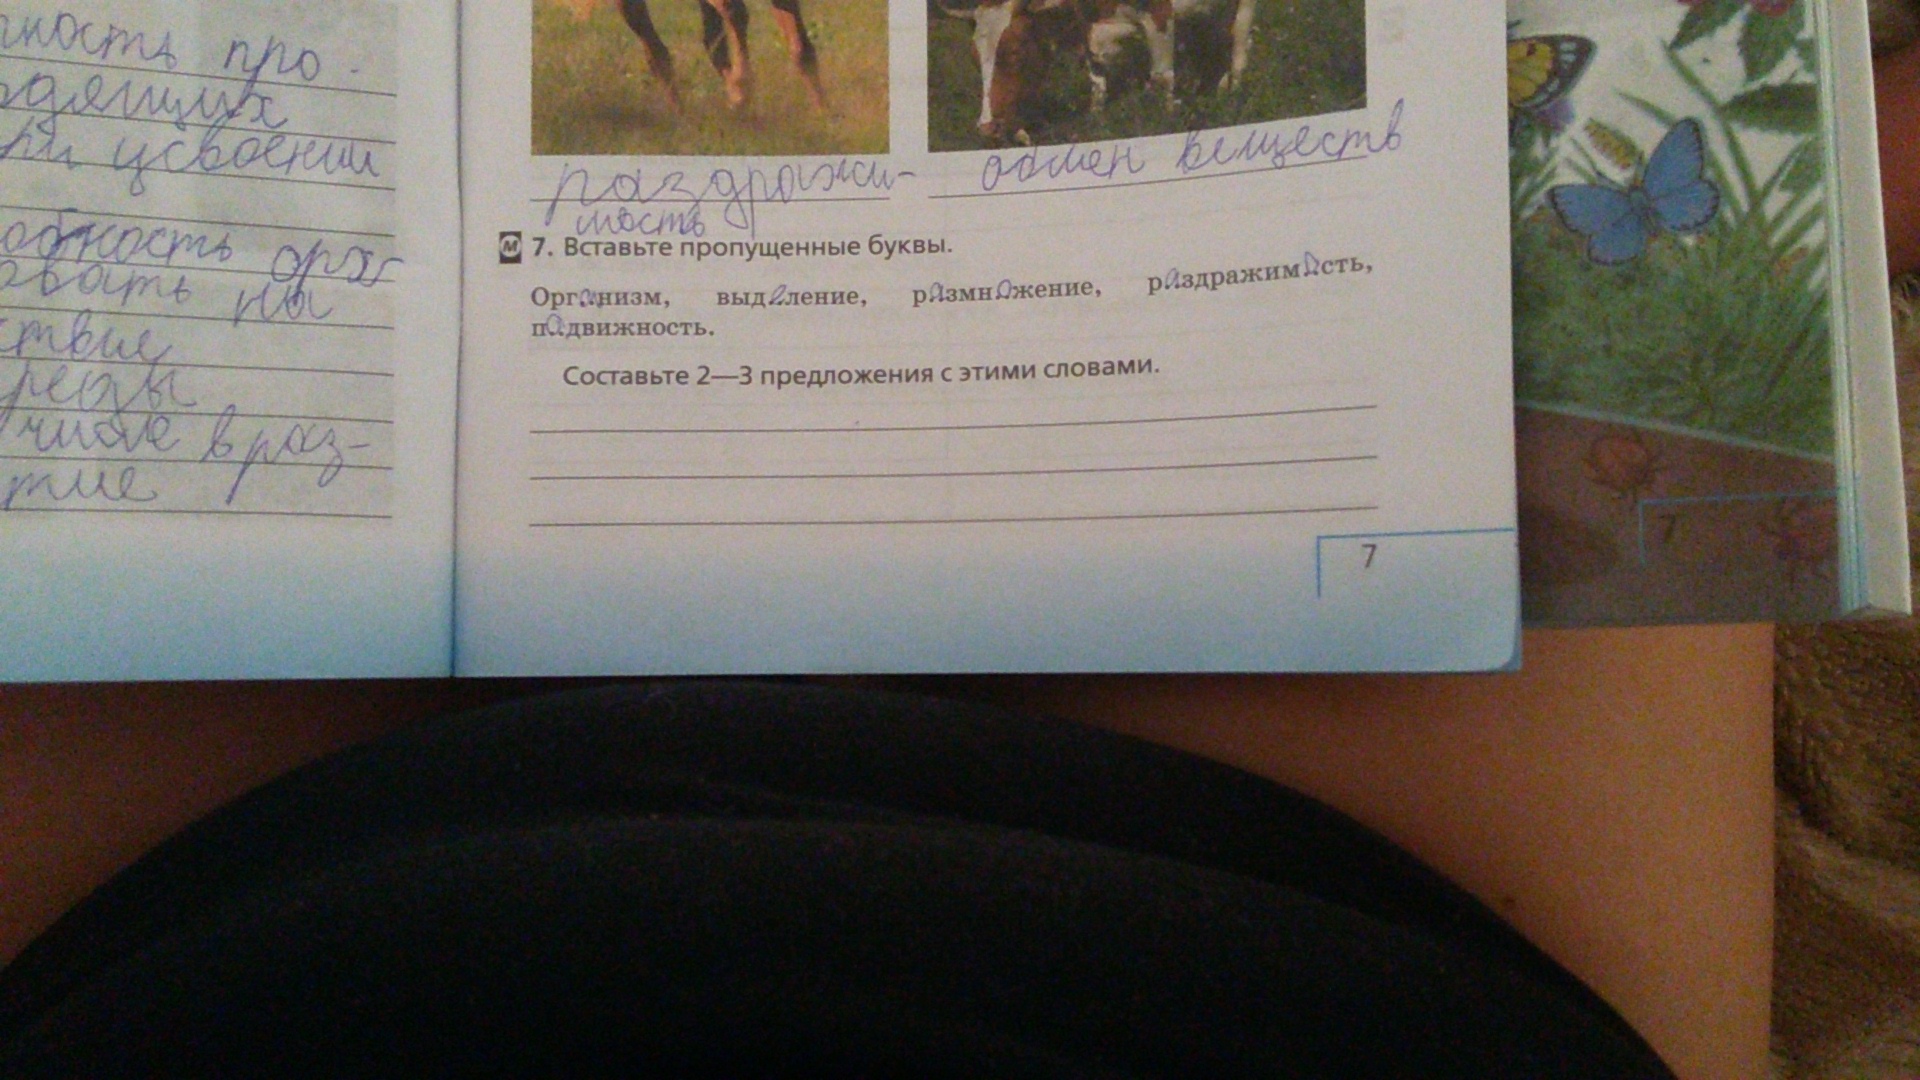 ность про-
дящих
при усвоении
обность орга
овать на
ствие
реды
числе в раз-
тие
раздражи-
мость
обмен веществ
м 7. Вставьте пропущенные буквы.
Организм, выделение, размножение, раздражимость,
подвижность.
Составьте 2—3 предложения с этими словами.
7
7